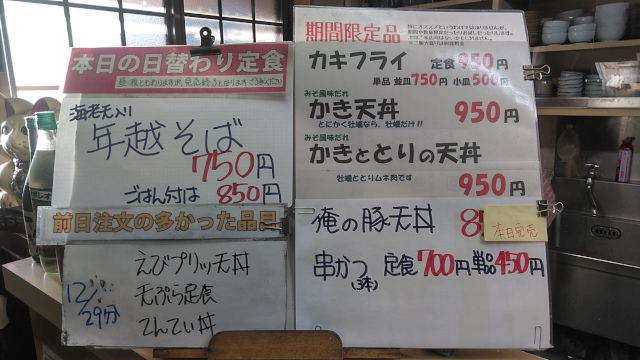 本日の日替わり定食
海老天入り
年越そば
750円
ごはん付は 850円
前日注文の多かった品目
12/29分
えびプリッ天丼
天ぷら定食
てんてい丼
期間限定品
カキフライ 定食 950円
単品 並皿750円 小皿500円
みそ風味だれ
かき天丼 950円
とにかく牡蠣なら、牡蠣だけ!!
みそ風味だれ
かきととりの天丼
牡蠣ととりムネ肉です
950円
俺の豚天丼
本日完売
串かつ(3本) 定食700円 単品450円